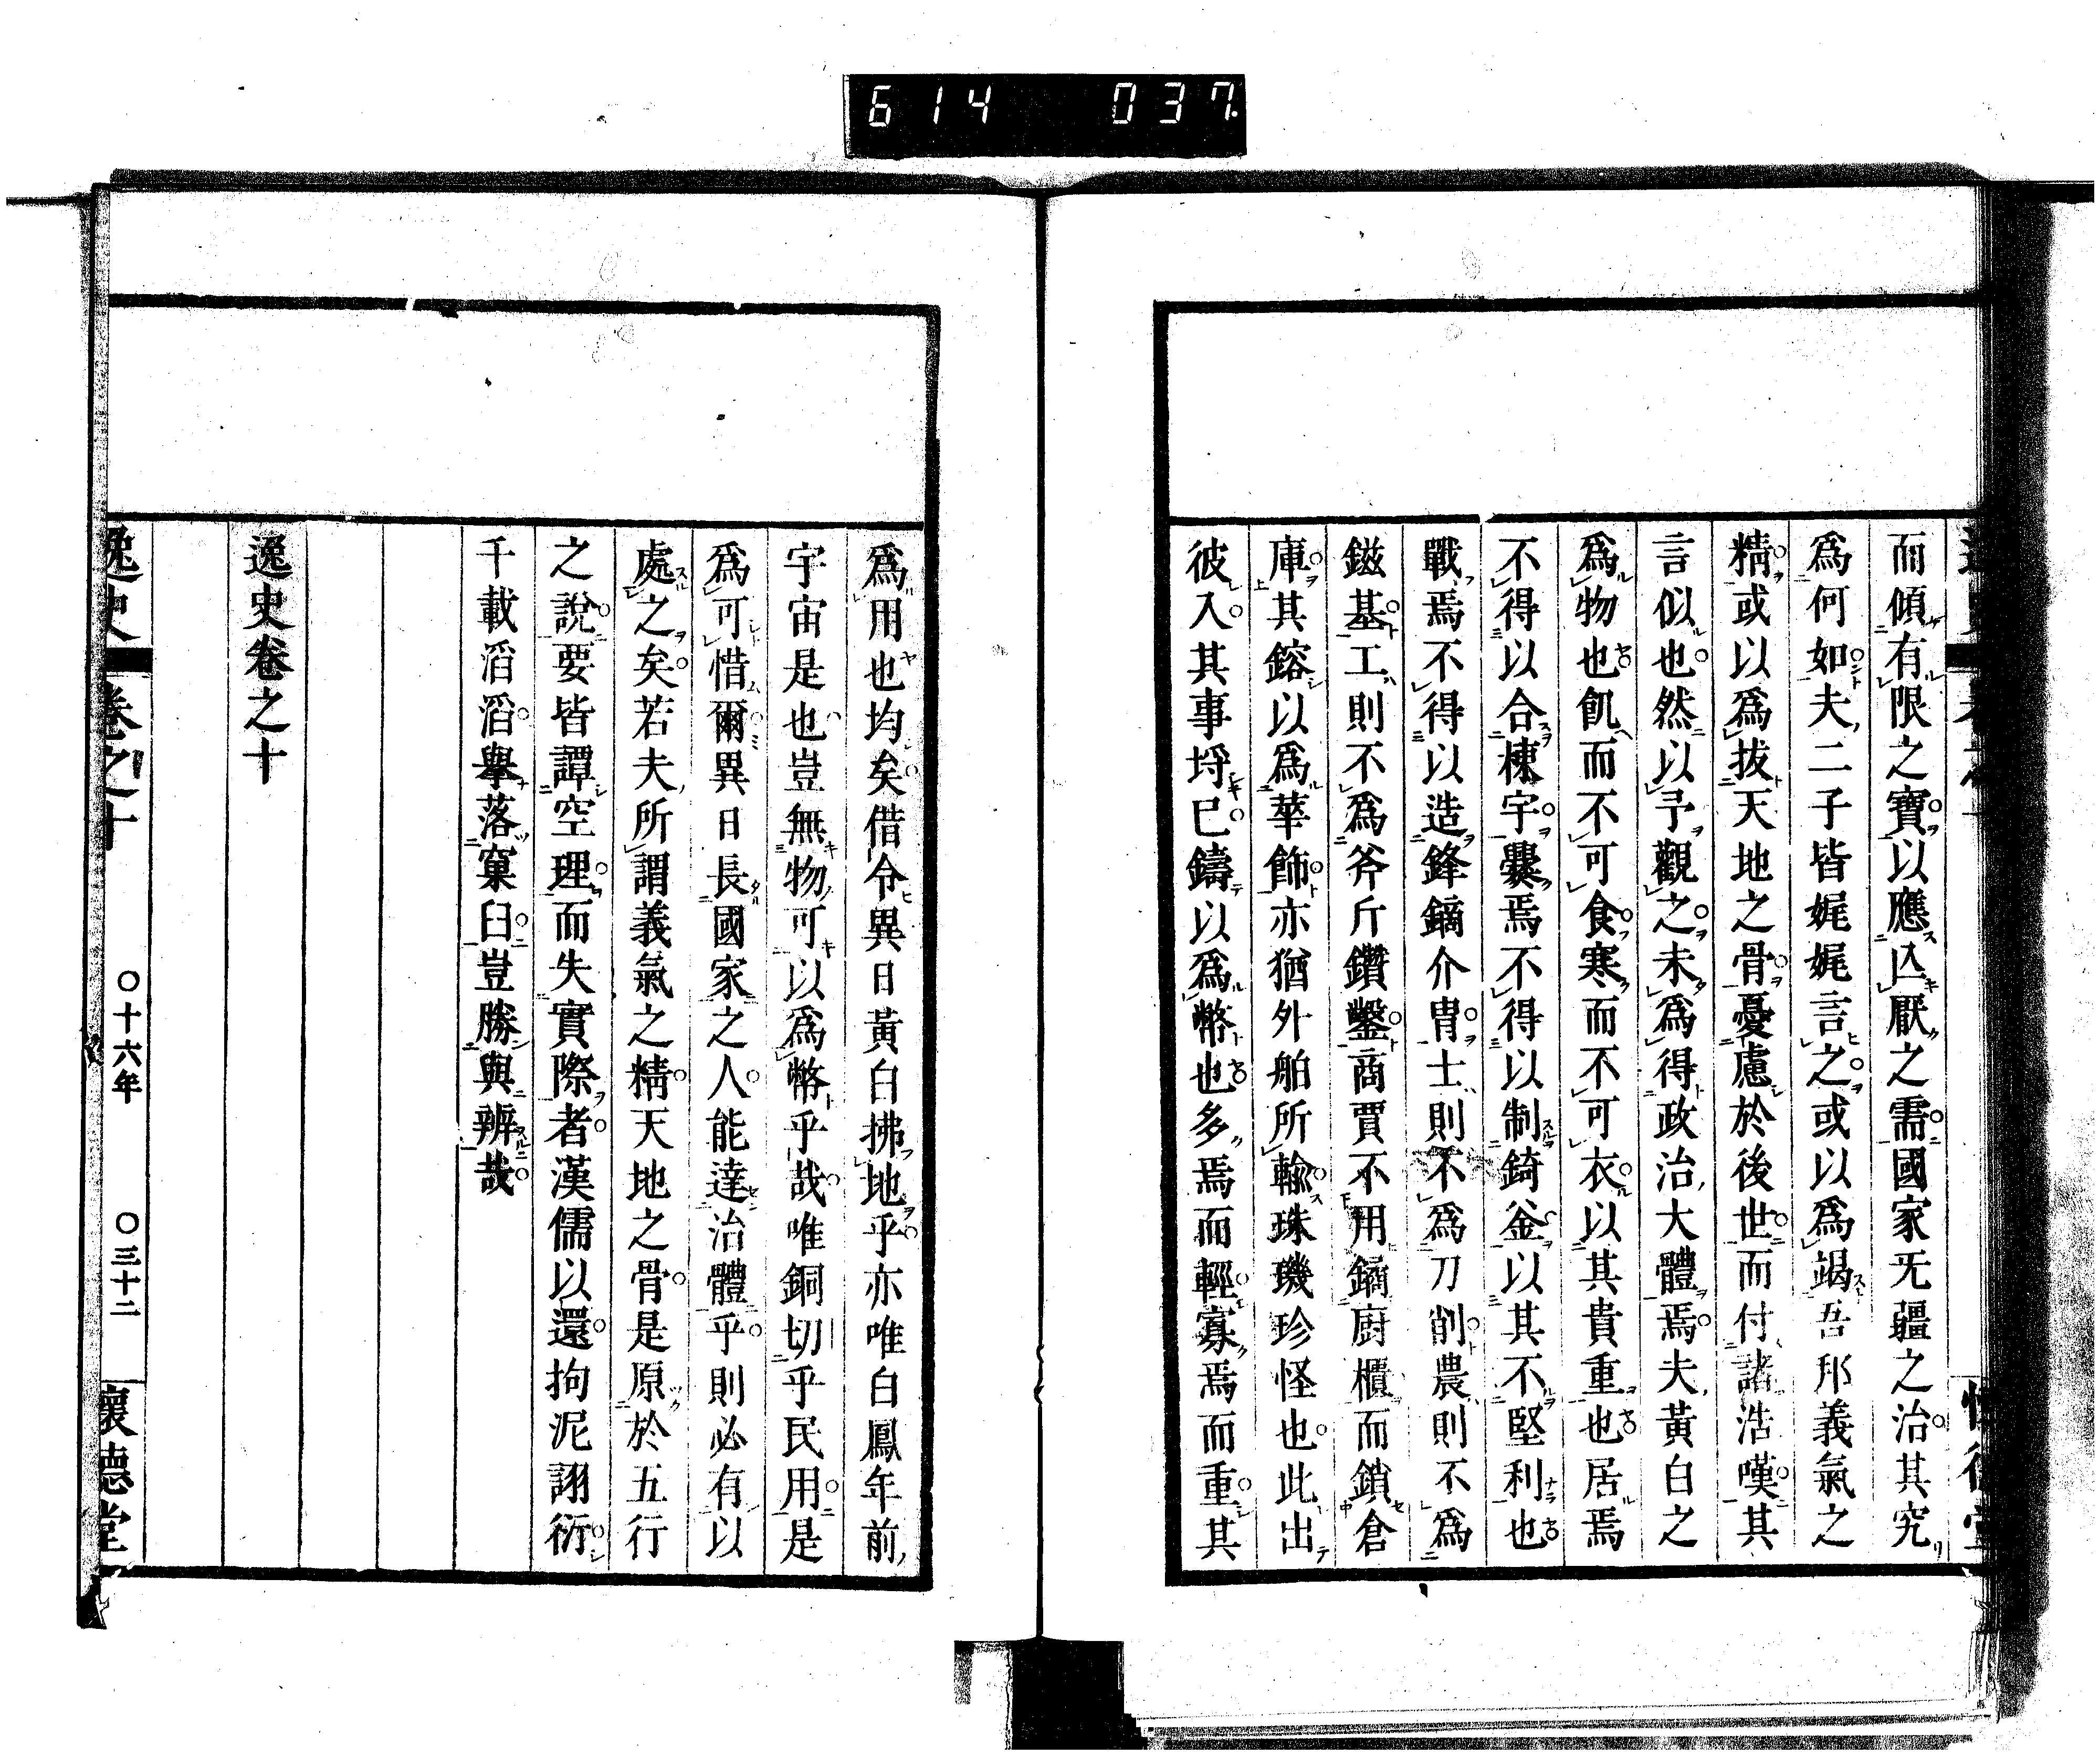 614 037
而傾有限之寶以應亾厭之需國家旡疆之治其究
爲何如夫二子皆娓娓言之或以爲竭吾邦義氣之
精或以爲拔天地之骨憂慮於後世而付諸浩嘆其
言似也然以予觀之未爲得政治大體焉夫黃白之
爲物也飢而不可食寒而不可衣以其貴重也居焉
不得以合棟宇爨焉不得以制錡釜以其不堅利也
戰焉不得以造鋒鏑介胄士則不爲刀削農則不爲
鎡基工則不爲斧斤鑽鑿商賈不用鏑廚櫃而鎖倉
庫其鎔以爲華飾亦猶外舶所輸珠璣珍怪也此出
彼入其事埒已鑄以爲幣也多焉而輕寡焉而重其
爲用也均矣借令異日黃白拂地乎亦唯白鳳年前
宇宙是也豈無物可以爲幣乎哉唯銅切乎民用是
爲可惜爾異日長國家之人能達治體乎則必有以
處之矣若夫所謂義氣之精天地之骨是原於五行
之說要皆譚空理而失實際者漢儒以還拘泥詡衍
千載滔滔擧落窠臼豈勝與辨哉
逸史卷之十
逸史 卷之十 〇十六年 〇三十二 懷德堂